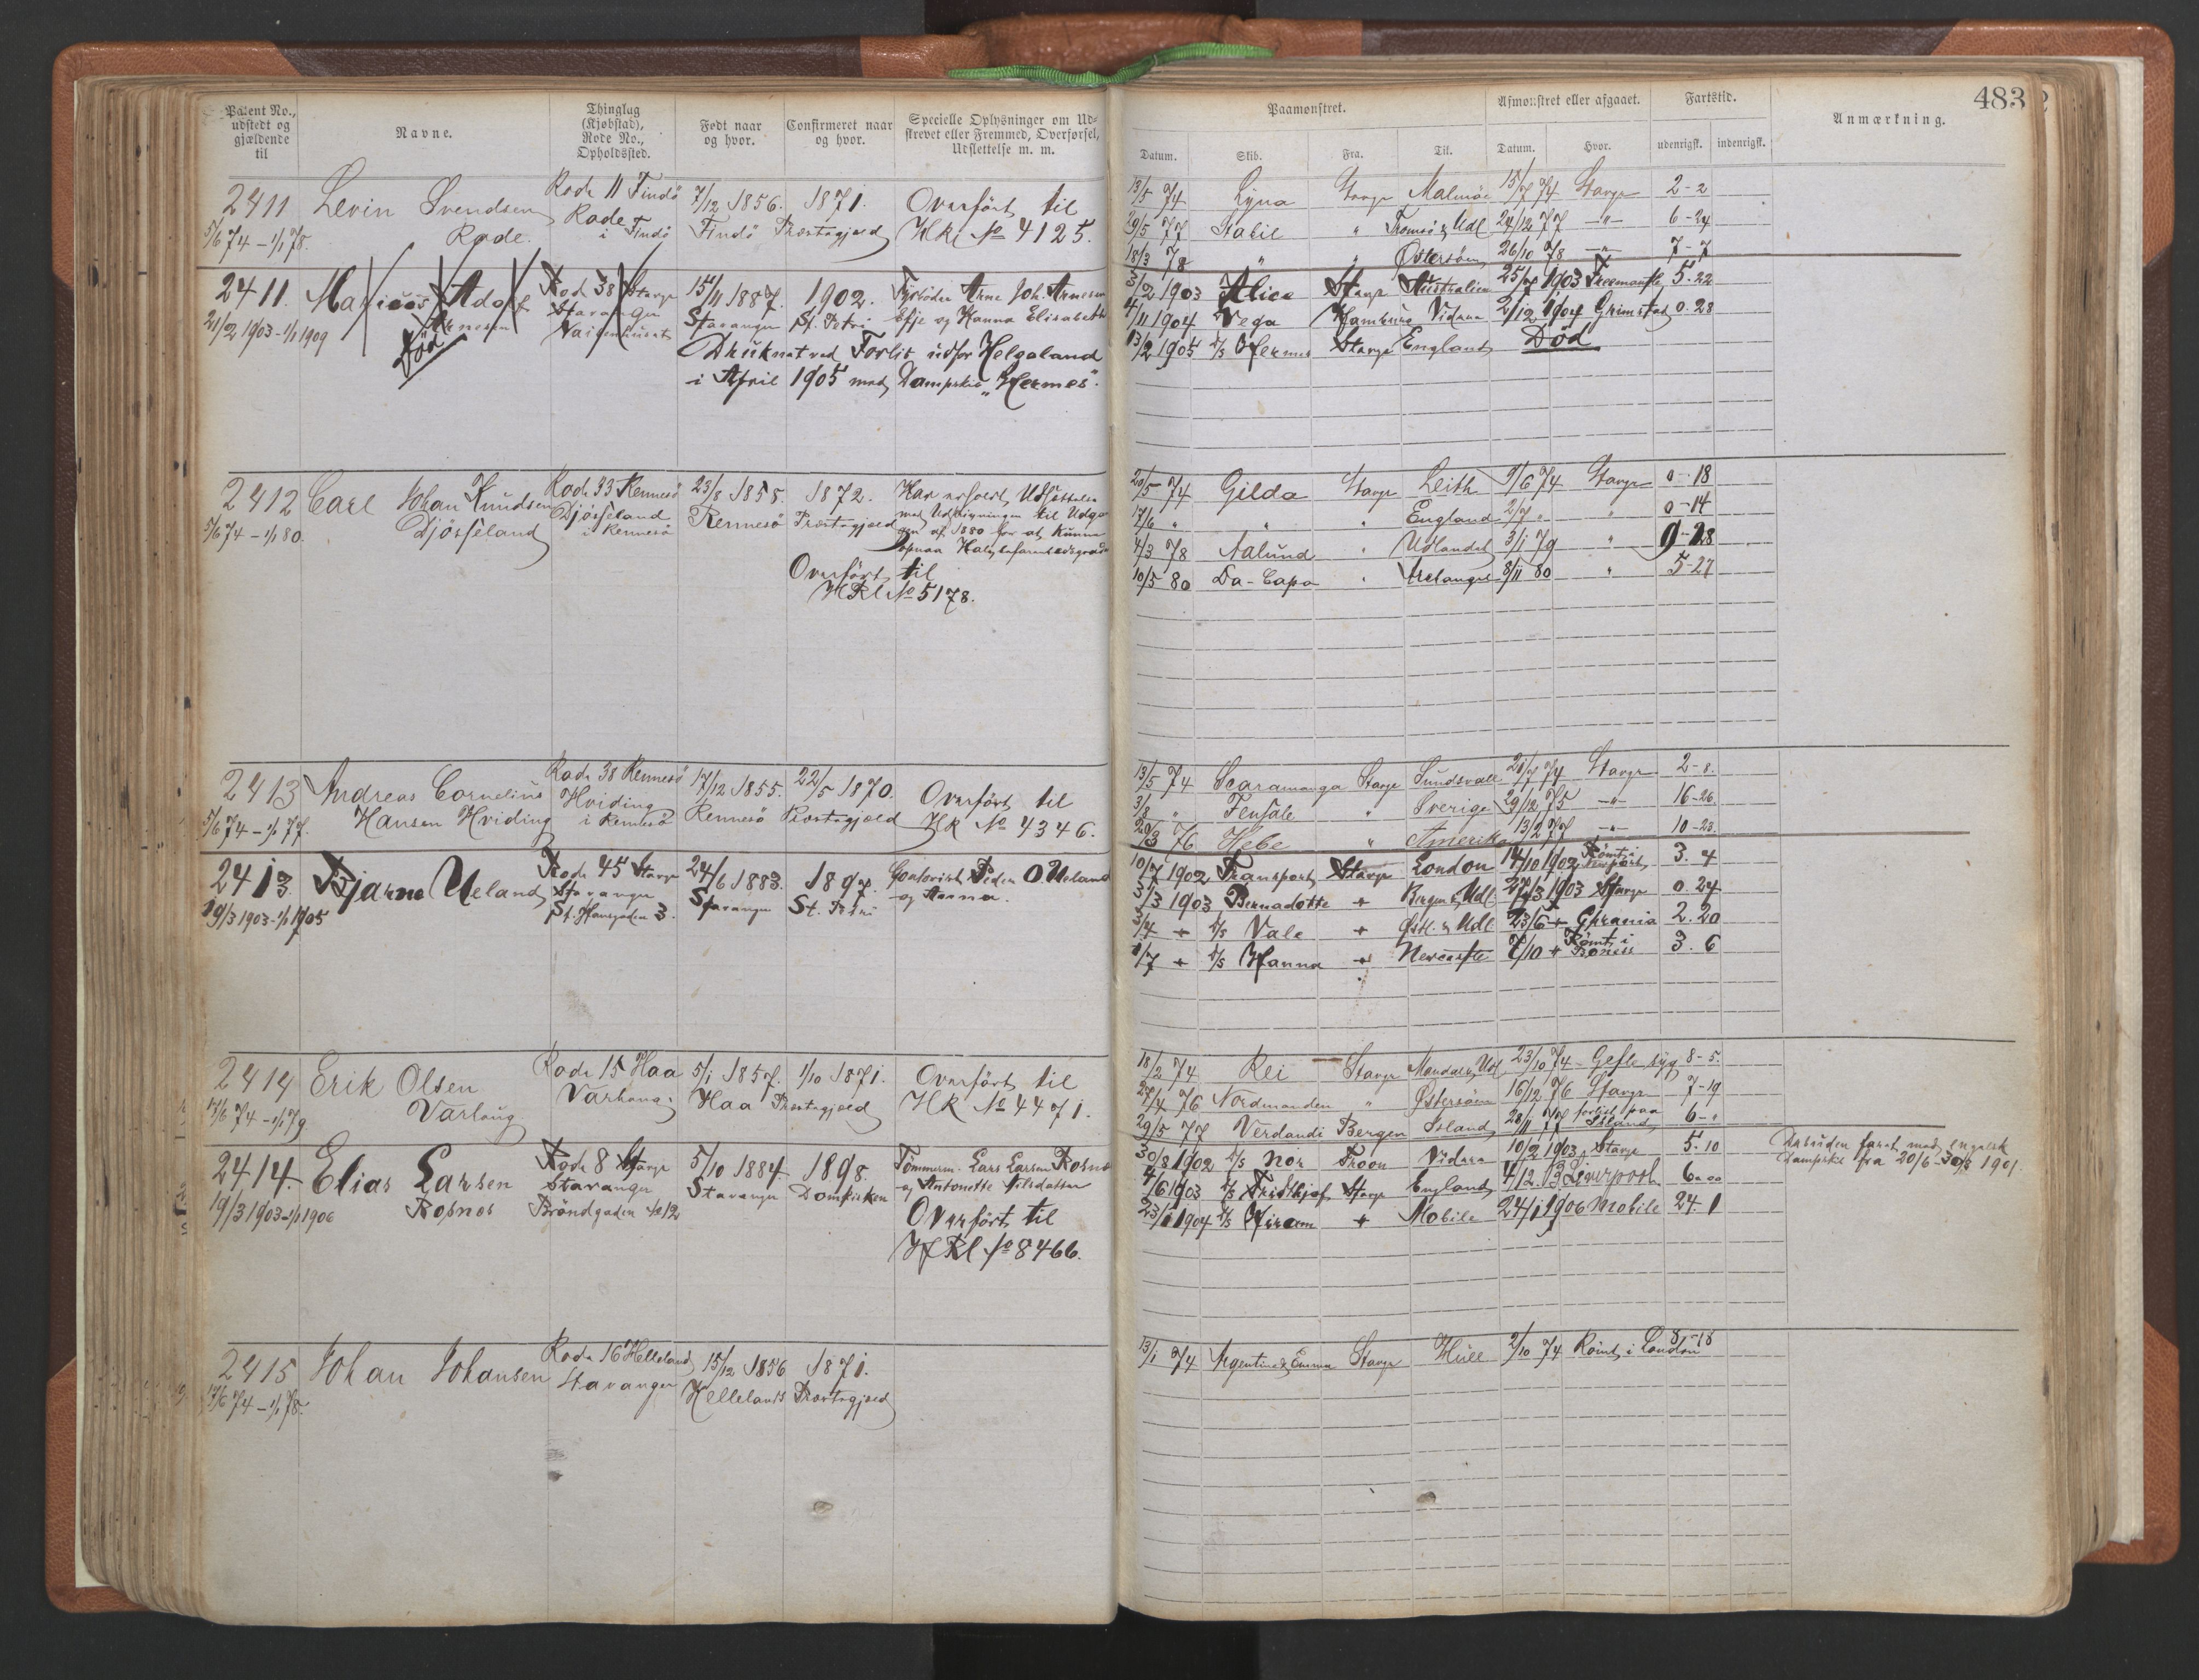 Patent No., udstedt og gjældende til
Navne.
Thinglag (Kjøbstad), Rode No., Opholdssted.
Født naar og hvor.
Confirmeret naar og hvor.
Specielle Oplysninger om Udskrevet eller Fremmed, Overførsel, Udslettelse m. m.
Paamønstret.
Afmønstret eller afgaaet.
Fartstid.
Anmærkning.
483
Datum. Skib. Fra. Til. Datum. Hvor. udenrigsk. indenrigsk.
2411 Levin Svendsen Rode 11 Findö 7/12 1856. 1871. Overfört til
5/6 74 - 1/1 78. Rade. Rade i Findö Findö Præstegjæld HRl No 4125.
13/5 74 Lyna Stavgr Malmöe 15/7 74 Stavgr 2-2
29/5 77 Stabil " Tromsö & Udl 24/12 77 -"- 6-24
18/3 78 " " Östersöen 26/10 78 -"- 7-7
2411. Adolf Rode 38 Stavgr 15/11 1887. 1902. Fyrböder Arne Joh. Arnesen
21/2 1903 - 1/1 1909 Arnesen Stavanger Vaisenhuset Stavanger St. Petri og Hanna Elisabeth
Död
Druknet ved Forlis udfor Helgoland
i April 1905 med Dampskib "Hermes".
3/2 1903 Alice Stavgr Australien 25/7 1903 Freemantle 5.22
4/11 1904 Vega Hamburg Vidare 2/12 1904 Grimstad 0.28
13/2 1905 D/S Hermes Stavgr England Död
2412 Carl Johan Knudsen Rode 33 Rennesö 23/8 1858. 1872. Har erholdt Udsættelse
5/6 74 - 1/1 80. Djösseland Djösseland i Rennesö Rennesö Præstegjæld med Udskrivningen til Udgangen af 1880 for at kunne
Overfört til
HRl No 5178.
20/5 74 Gilda Stavgr Leith 9/6 74 Stavgr 0-18
17/6 " " " England 2/7 " " 0-14
4/3 78 Aalund " Udlandet 3/1 79 " 9-28
10/5 80 Da-Capo " Archangel 8/11 80 " 5-27
2413 Andreas Cornelius Rode 38 Rennesö 17/12 1855. 22/5 1870. Overfört til
5/6 74 - 1/1 77. Hansen Hviding Hviding i Rennesö Rennesö Præstegjæld HR No 4346.
13/5 74 Scaramanga Stavgr Sundsvall 21/7 74 Stavgr 2-8.
3/8 " Fensale " Sverige 29/12 75 -"- 16-26
20/3 76 Hebe " Amerika 13/2 77 -"- 10-23.
2413 Bjarne Ueland Rode 45 Stavgr 24/6 1883. 1897. Contorist Peder O Ueland
19/3 1903 - 1/1 1905 Stavanger St. Hansgaden 3. Stavanger St. Petri og Anna.
10/7 1902 Transport Stavgr London 14/10 1902 Römt i Newport 3.4
3/3 1903 Bernadotte + Bergen & Udl. 27/3 1903 Stavgr 0.24
3/4 + D/S Vale + Östl. & Udl. 23/6 + Chrania 2.20
1/7 + D/S Hanna + Newcastle 7/10 + Römt i Boness 3.6
2414 Erik Olsen Rode 15 Haa 5/1 1857. 1/10 1871. Overfört til
17/6 74 - 1/1 79 Varhaug Varhaug Haa Præstegjæld HR No 4471.
18/2 74 Rei Stavgr Mandal & Udl 23/10 74 Gefle syg 8-5.
27/4 76 Nordmanden " Östersöen 16/12 76 Stavgr 7-19
29/5 77 Verdandi Bergen Island 28/11 77 forlist paa Island 6-"
2414. Elias Larsen Rode 8 Stavgr 5/10 1884. 1898. Tömmerm. Lars Larsen Rosnes
19/3 1903 - 1/1 1906 Rosnes Stavanger Bröndgaden No 12 Stavanger Domkirken og Antonette Nilsdatter
Overfört til
HRl No 8466.
30/8 1902 D/S Nor Troon Vidare 10/2 1903 Stavgr 5.10 Desuden faret med engelsk
4/6 1903 D/S Fridthjof Stavgr England 4/12 03 Liverpool 6.00 Dampskib fra 20/6 - 30/8 1901.
23/1 1904 D/S Hiram + Mobile 24/1 1906 Mobile 24.1
2415 Johan Johansen Rode 16 Helleland 15/12 1856 1871.
17/6 74 - 1/1 78. Stavanger Hellelands Præstegjæld
13/1 74 Argentine & Emma Stavgr Hull 2/10 74 Römt i London 8-18